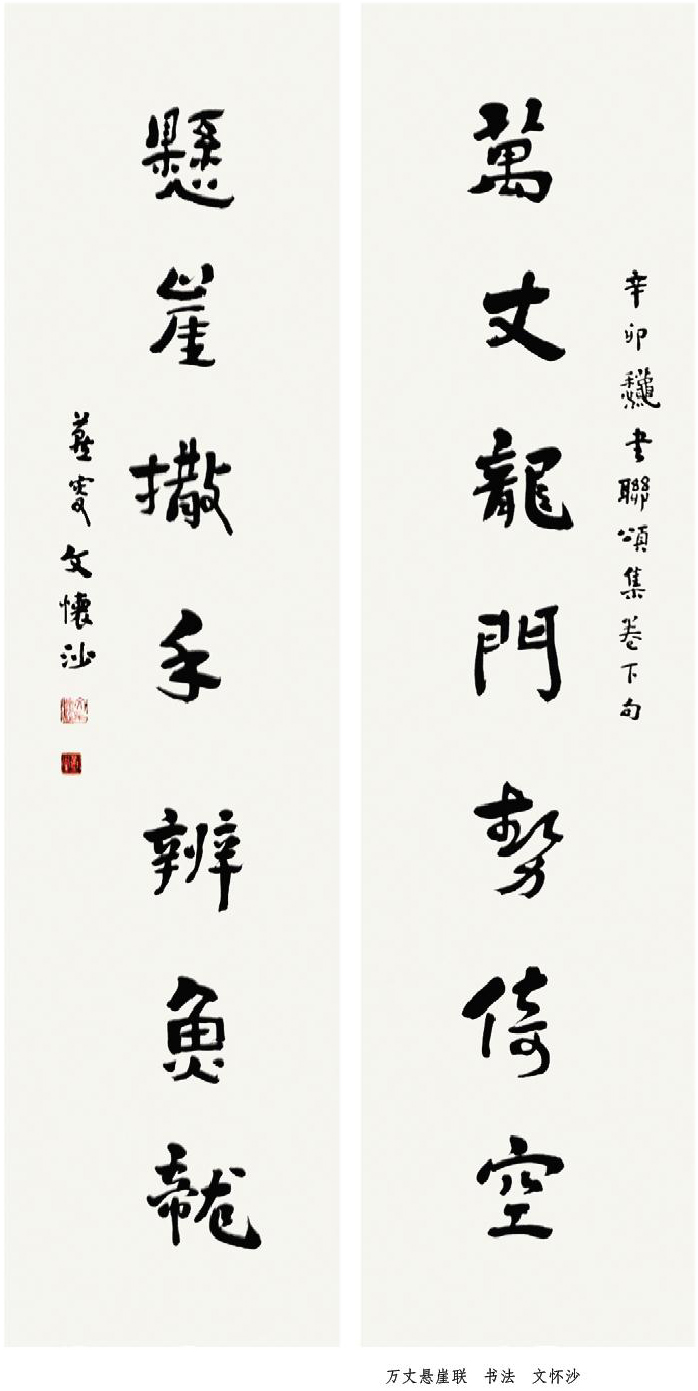 辛卯龝書聯頌集卷下句
萬丈龍門勢倚空
懸崖撒手辨魚龍
燕叟文懷沙
万丈悬崖联 书法 文怀沙